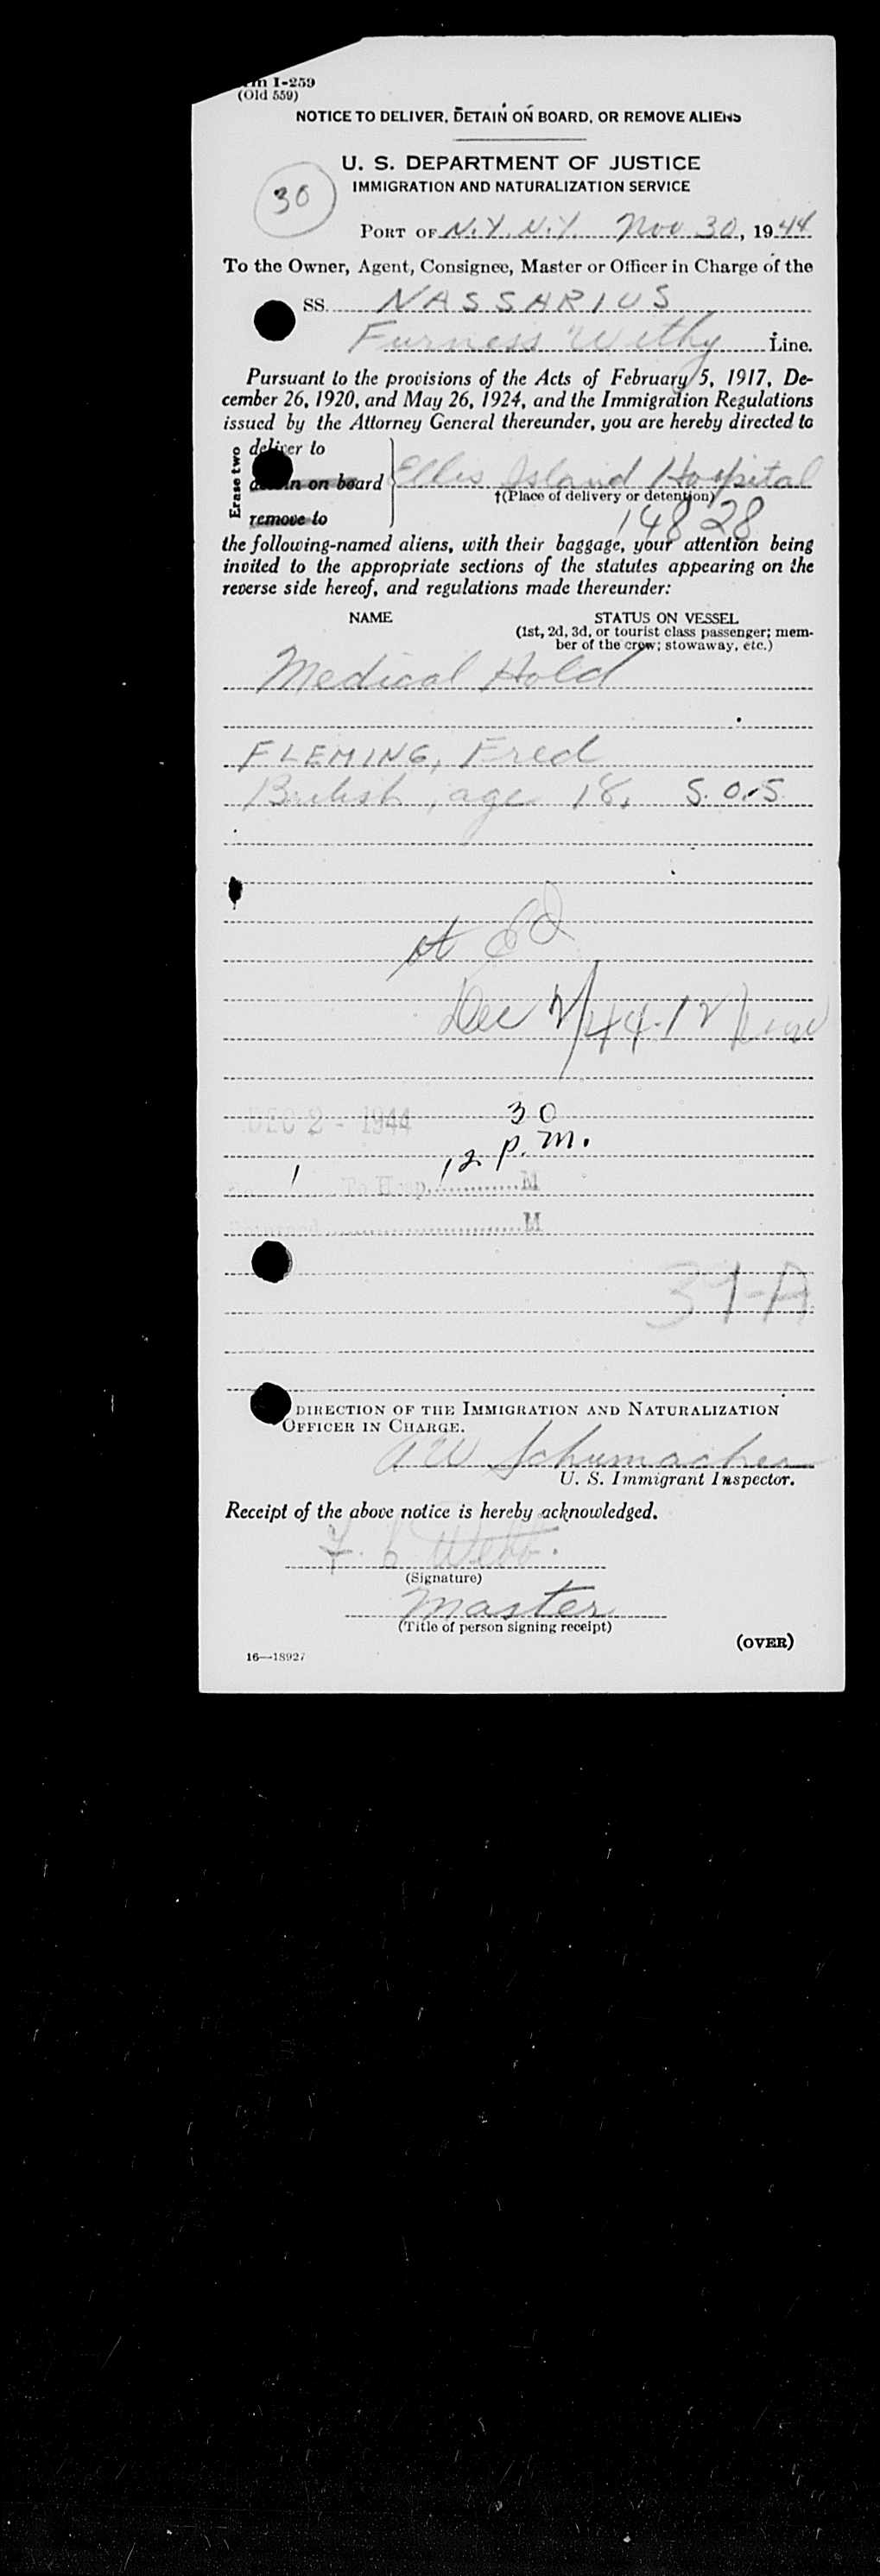 I-259
(Old 559)
NOTICE TO DELIVER, DETAIN ON BOARD, OR REMOVE ALIENS
U. S. DEPARTMENT OF JUSTICE
IMMIGRATION AND NATURALIZATION SERVICE
30
PORT OF N.Y. N.Y. Nov 30, 1944
To the Owner, Agent, Consignee, Master or Officer in Charge of the
SS. NASSARIUS
Furness Withy Line.
Pursuant to the provisions of the Acts of February 5, 1917, De-
cember 26, 1920, and May 26, 1924, and the Immigration Regulations
issued by the Attorney General thereunder, you are hereby directed to
Erase two
deliver to
detain on board
remove to
Ellis Island Hospital
†(Place of delivery or detention)
14828
the following-named aliens, with their baggage, your attention being
invited to the appropriate sections of the statutes appearing on the
reverse side hereof, and regulations made thereunder:
NAME
STATUS ON VESSEL
(1st, 2d, 3d, or tourist class passenger; mem-
ber of the crew; stowaway, etc.)
Medical Hold
FLEMING, Fred
British, age 18, S.O.S
Dec 2/44-12
DEC 2 - 1944
30
12 p.m.
1 To Hosp. M
M
39-A
DIRECTION OF THE IMMIGRATION AND NATURALIZATION
OFFICER IN CHARGE.
AW Schumacher
U. S. Immigrant Inspector.
Receipt of the above notice is hereby acknowledged.
Webb.
(Signature)
Master
(Title of person signing receipt)
(OVER)
16—18927